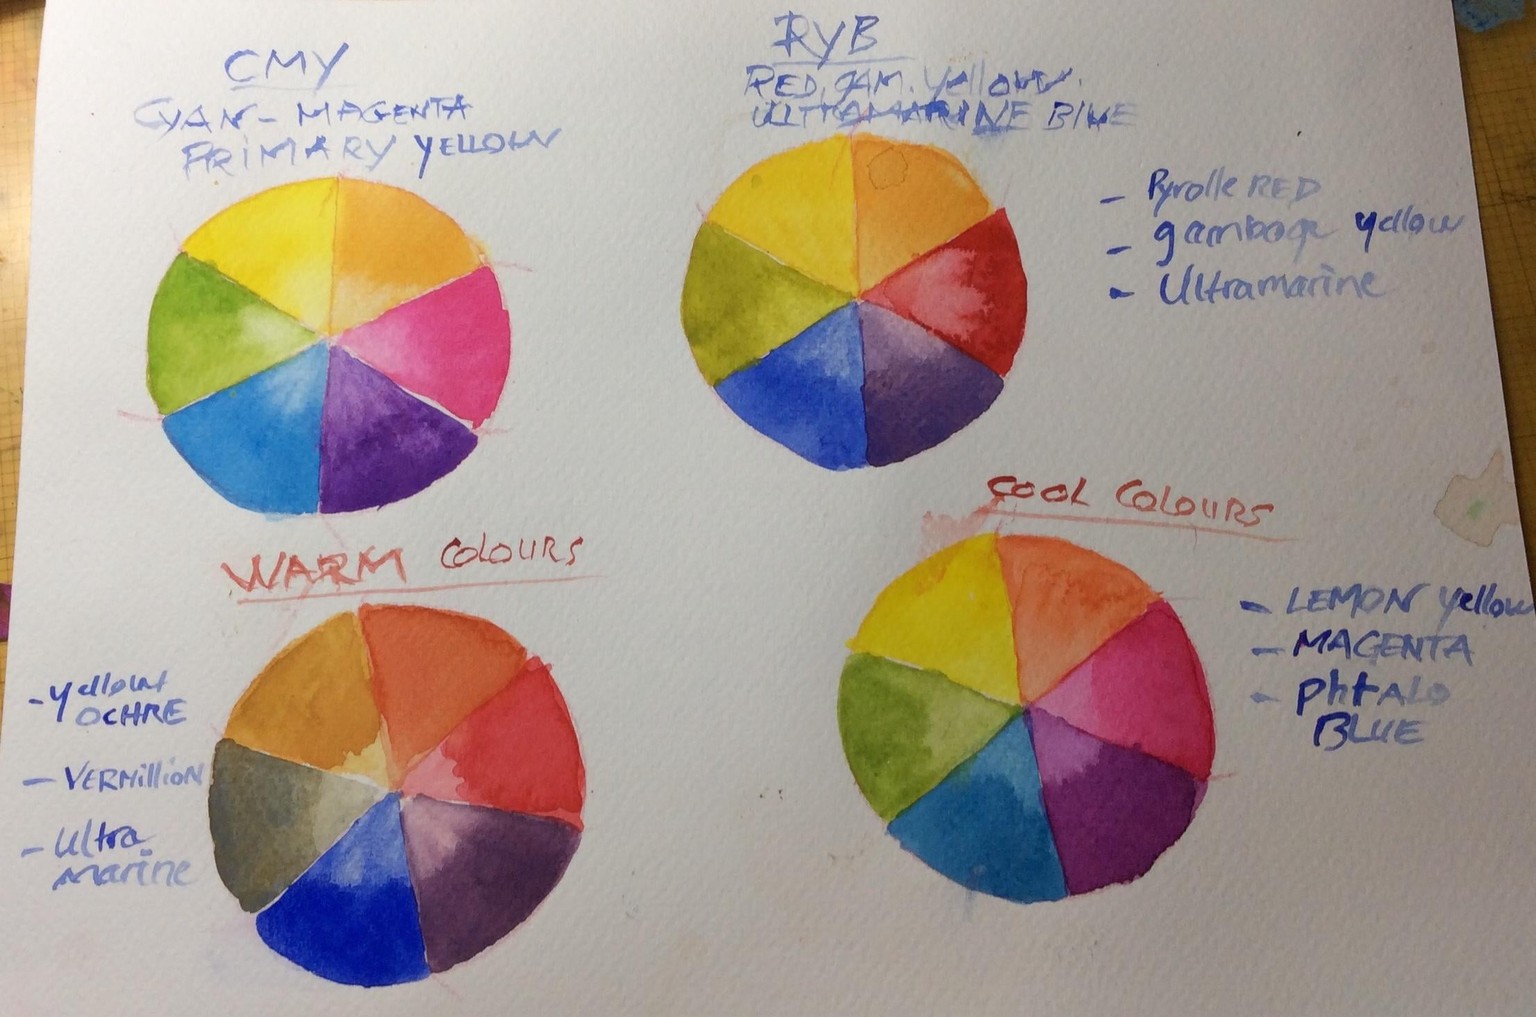 CMY
CYAN - MAGENTA
PRIMARY YELLOW
RYB
RED, GAM. Yellow.
ULTRAMARINE BLUE
- Pyrolle RED
- gamboge yellow
- Ultramarine
WARM COLOURS
- Yellow
OCHRE
- VERMILLION
- Ultra
marine
COOL COLOURS
- LEMON Yellow
- MAGENTA
- PhtALO
BLUE